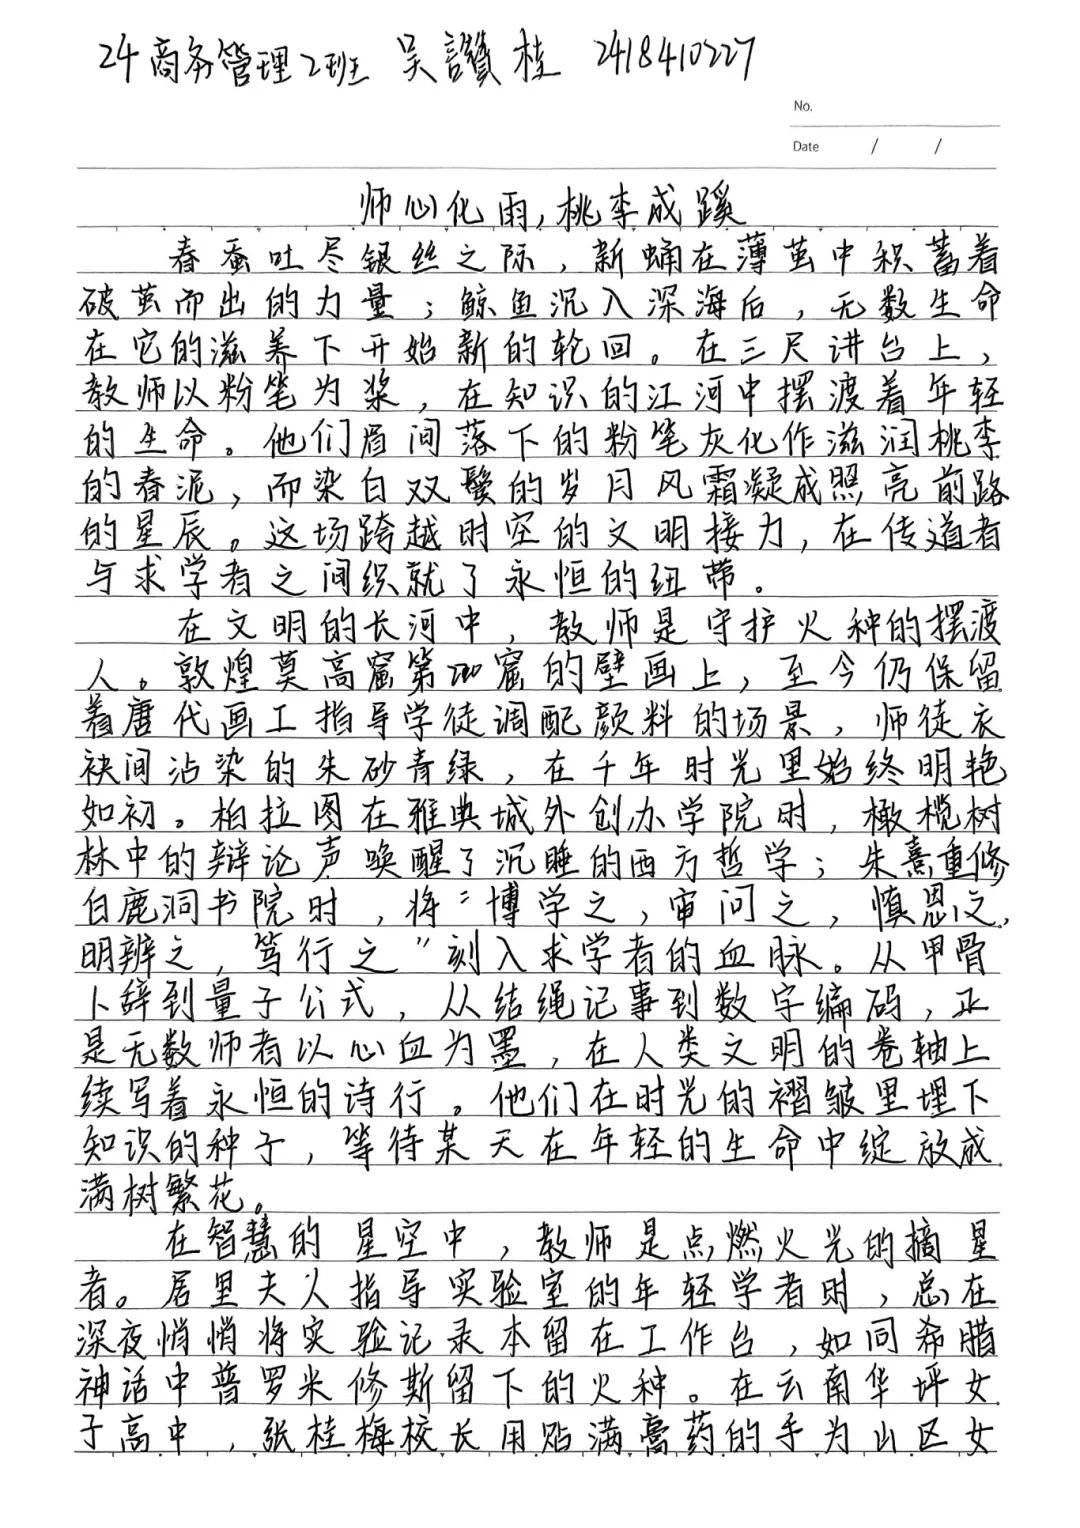 24商务管理2班 吴讚桂 2418410227
No.
Date / /
师心化雨,桃李成蹊
春蚕吐尽银丝之际，新蛹在薄茧中积蓄着
破茧而出的力量；鲸鱼沉入深海后，无数生命
在它的滋养下开始新的轮回。在三尺讲台上，
教师以粉笔为桨，在知识的江河中摆渡着年轻
的生命。他们眉间落下的粉笔灰化作滋润桃李
的春泥，而染白双鬓的岁月风霜凝成照亮前路
的星辰。这场跨越时空的文明接力，在传道者
与求学者之间织就了永恒的纽带。
在文明的长河中，教师是守护火种的摆渡
人。敦煌莫高窟第220窟的壁画上，至今仍保留
着唐代画工指导学徒调配颜料的场景，师徒衣
袂间沾染的朱砂青绿，在千年时光里始终明艳
如初。柏拉图在雅典城外创办学院时，橄榄树
林中的辩论声唤醒了沉睡的西方哲学；朱熹重修
白鹿洞书院时，将“博学之，审问之，慎思之，
明辨之，笃行之”刻入求学者的血脉。从甲骨
卜辞到量子公式，从结绳记事到数字编码，正
是无数师者以心血为墨，在人类文明的卷轴上
续写着永恒的诗行。他们在时光的褶皱里埋下
知识的种子，等待某天在年轻的生命中绽放成
满树繁花。
在智慧的星空中，教师是点燃火光的摘星
者。居里夫人指导实验室的年轻学者时，总在
深夜悄悄将实验记录本留在工作台，如同希腊
神话中普罗米修斯留下的火种。在云南华坪女
子高中，张桂梅校长用贴满膏药的手为山区女